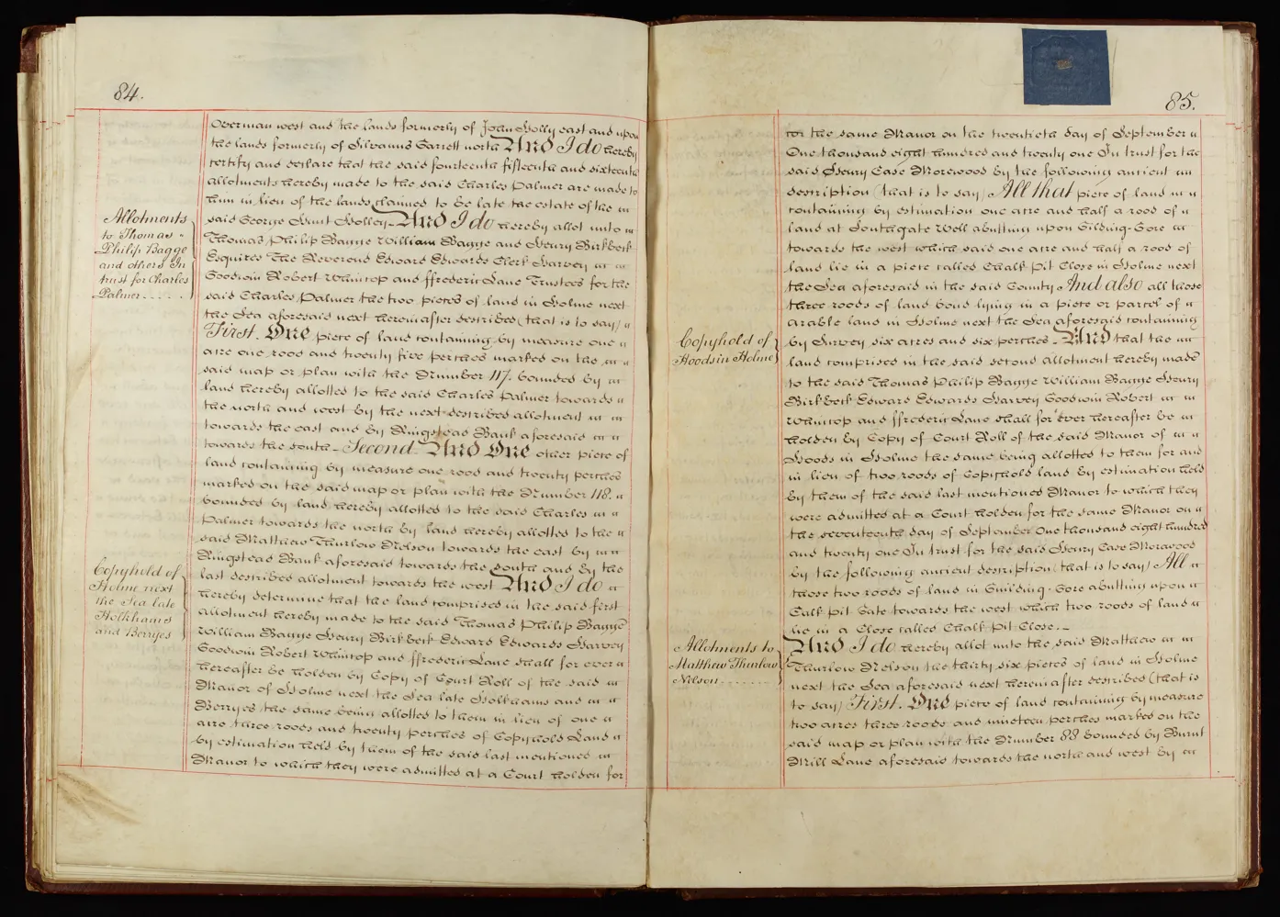 84.
Allotments
to Thomas
Philip Bagge
and others In
trust for Charles
Palmer.....
Copyhold of
Holme next
the Sea late
Holkhams
and Berryes
Overman west and the lands formerly of John Holly east and upon
the lands formerly of Silvanus Garrett north And I do hereby
certify and declare that the said fourteenth fifteenth and sixteenth
allotments hereby made to the said Charles Palmer are made to
him in lieu of the lands claimed to be late the estate of the
said George Hunt Holley And I do hereby allot unto
Thomas Philip Bagge William Bagge and Henry Birkbeck
Esquires The Reverend Edward Edwards Clerk Harvey
Goodwin Robert Whincop and ffrederic Lane Trustees for the
said Charles Palmer the two pieces of land in Holme next
the Sea aforesaid next hereinafter described (that is to say)
First. One piece of land containing by measure one
acre one rood and twenty five perches marked on the
said map or plan with the Number 117. bounded by
land hereby allotted to the said Charles Palmer towards
the north and west by the next described allotment
towards the east and by Ringstead Bank aforesaid
towards the south - Second And One other piece of
land containing by measure one rood and twenty perches
marked on the said map or plan with the Number 118.
bounded by land hereby allotted to the said Charles
Palmer towards the north by land hereby allotted to the
said Matthew Thurlow Nelson towards the east by
Ringstead Bank aforesaid towards the south and by the
last described allotment towards the west And I do
hereby determine that the land comprised in the said first
allotment hereby made to the said Thomas Philip Bagge
William Bagge Henry Birkbeck Edward Edwards Harvey
Goodwin Robert Whincop and ffrederic Lane shall for ever
hereafter be holden by Copy of Court Roll of the said
Manor of Holme next the Sea late Holkhams and
Berryes the same being allotted to them in lieu of one
acre three roods and twenty perches of Copyhold Land
by estimation held by them of the said last mentioned
Manor to which they were admitted at a Court holden for
85.
Copyhold of
Hoods in Holme
Allotments to
Matthew Thurlow
Nelson.......
for the same Manor on the twentieth day of September
One thousand eight hundred and twenty one In trust for the
said Henry Case Morewood by the following ancient
description (that is to say) All that piece of land
containing by estimation one acre and half a rood of
land at Southgate Well abutting upon Gilding-Gore
towards the west which said one acre and half a rood of
land lie in a piece called Chalk Pit Close in Holme next
the Sea aforesaid in the said County And also all those
three roods of land bond lying in a piece or parcel of
arable land in Holme next the Sea aforesaid containing
by Survey six acres and six perches - And that the
land comprised in the said second allotment hereby made
to the said Thomas Philip Bagge William Bagge Henry
Birkbeck Edward Edwards Harvey Goodwin Robert
Whincop and ffrederic Lane shall for ever hereafter be
holden by Copy of Court Roll of the said Manor of
Hoods in Holme the same being allotted to them for and
in lieu of two roods of Copyhold land by estimation held
by them of the said last mentioned Manor to which they
were admitted at a Court holden for the same Manor on
the seventeenth day of September One thousand eight hundred
and twenty one In trust for the said Henry Case Morewood
by the following ancient description (that is to say) All
those two roods of land in Guilding-Gore abutting upon
Calk Pit Gate towards the west which two roods of land
lie in a Close called Chalk Pit Close. -
And I do hereby allot unto the said Matthew
Thurlow Nelson the thirty six pieces of land in Holme
next the Sea aforesaid next hereinafter described (that is
to say) First. One piece of land containing by measure
two acres three roods and nineteen perches marked on the
said map or plan with the Number 88 bounded by Burnt
Mill Lane aforesaid towards the north and west by